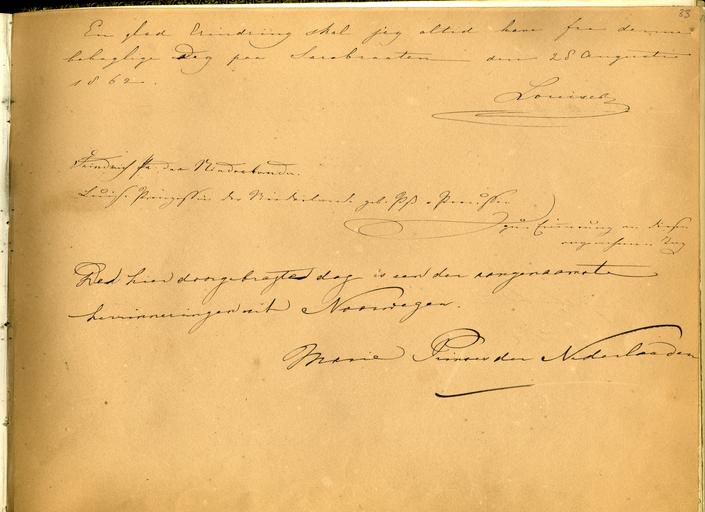 33
En glad Erindring skal jeg altid have fra denne
behaglige Dag paa Sarabraaten den 28 Augusti
1862.
Louise
Friedrich Pz. der Niederlande.
Luise Prinzessin der Niederlande geb. Pß v Preußen
zur Erinnerung an diesen
angenehmen Tag
Den hier doorgebragte dag is een der aangenaamste
herinneringen uit Noorwegen.
Marie Prinses der Nederlanden